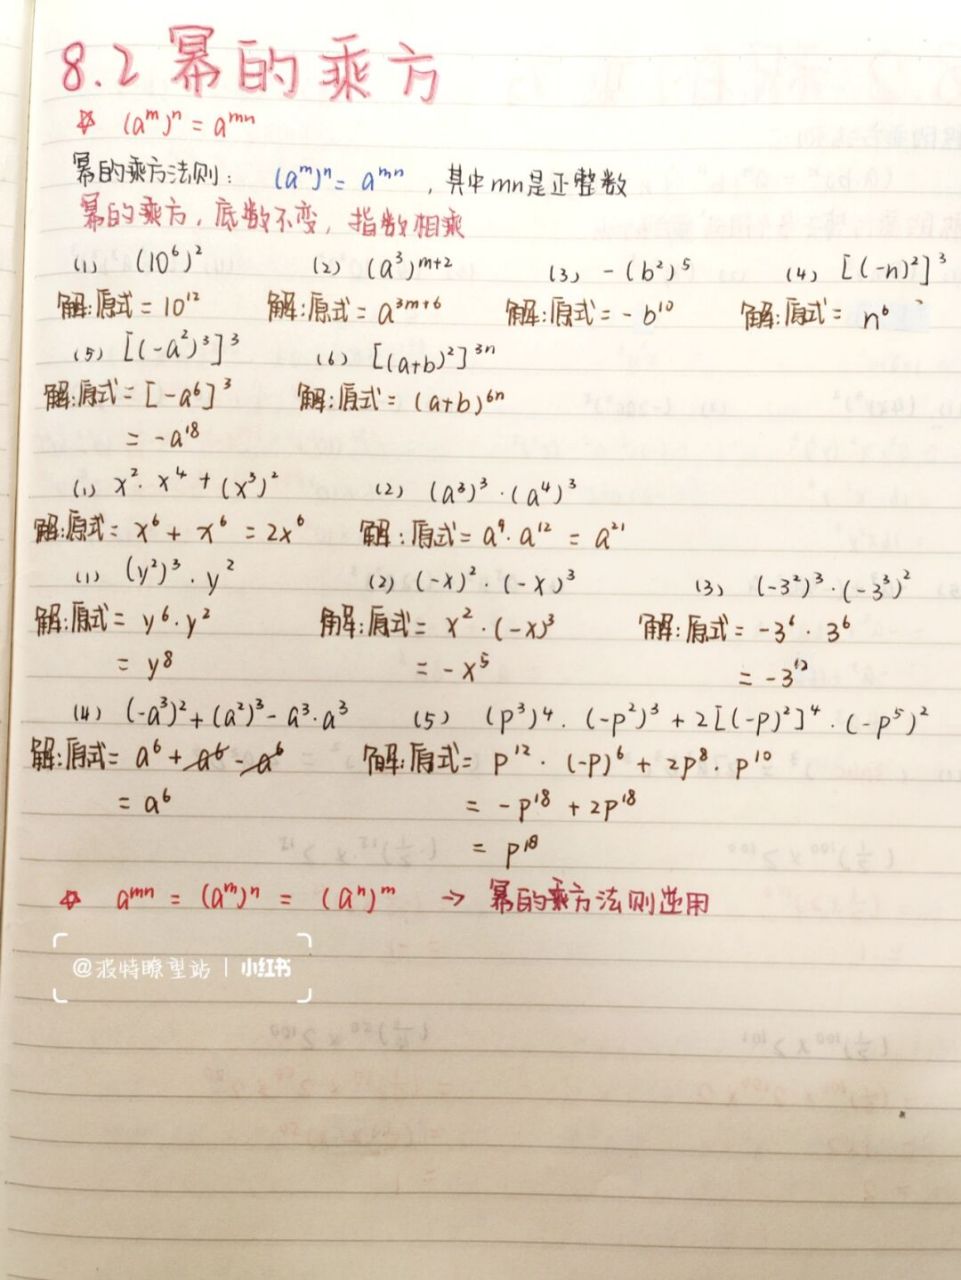 8.2 幂的乘方
☆ (aᵐ)ⁿ = aᵐⁿ
幂的乘方法则: (aᵐ)ⁿ = aᵐⁿ , 其中mn是正整数
幂的乘方, 底数不变, 指数相乘
(1) (10⁶)² (2) (a³)ᵐ⁺² (3) -(b²)⁵ (4) [(-n)²]³
解:原式 = 10¹² 解:原式 = a³ᵐ⁺⁶ 解:原式 = -b¹⁰ 解:原式 = n⁶
(5) [(-a²)³]³ (6) [(a+b)²]³ⁿ
解:原式 = [-a⁶]³ 解:原式 = (a+b)⁶ⁿ
= -a¹⁸
(1) x²·x⁴ + (x³)² (2) (a³)³·(a⁴)³
解:原式 = x⁶ + x⁶ = 2x⁶ 解:原式 = a⁹·a¹² = a²¹
(1) (y²)³·y² (2) (-x)²·(-x)³ (3) (-3²)³·(-3³)²
解:原式 = y⁶·y² 解:原式 = x²·(-x)³ 解:原式 = -3⁶·3⁶
= y⁸ = -x⁵ = -3¹²
(4) (-a³)² + (a²)³ - a³·a³ (5) (p³)⁴·(-p²)³ + 2[(-p)²]⁴·(-p⁵)²
解:原式 = a⁶ + a⁶ - a⁶ 解:原式 = p¹²·(-p)⁶ + 2p⁸·p¹⁰
= a⁶ = -p¹⁸ + 2p¹⁸
= p¹⁸
☆ aᵐⁿ = (aᵐ)ⁿ = (aⁿ)ᵐ → 幂的乘方法则逆用
@波特瞭望站 | 小红书